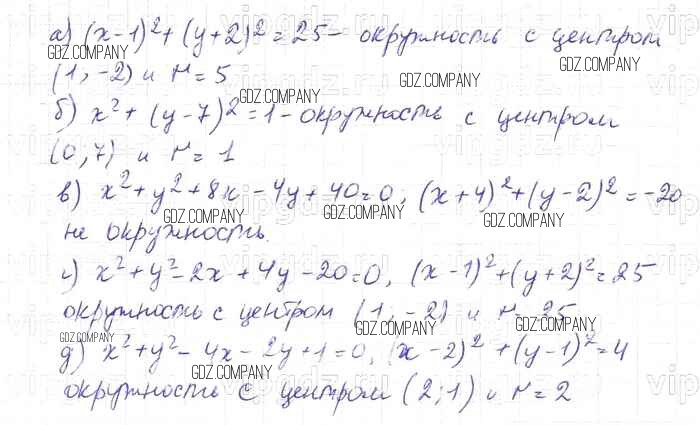 а) (x-1)²+(y+2)²=25 - окружность с центром
(1, -2) и r = 5
б) x² + (y-7)² = 1 - окружность с центром
(0,7) и r = 1
в) x²+y²+8x-4y+40=0, (x+4)²+(y-2)²=-20
не окружность.
г) x²+y²-2x+4y-20=0, (x-1)²+(y+2)²=25
окружность с центром (1; -2) и r = 25
д) x²+y²-4x-2y+1=0, (x-2)²+(y-1)²=4
окружность с центром (2;1) и r = 2
GDZ.COMPANY
GDZ.COMPANY
GDZ.COMPANY
GDZ.COMPANY
GDZ.COMPANY
GDZ.COMPANY
GDZ.COMPANY
GDZ.COMPANY
GDZ.COMPANY
GDZ.COMPANY
GDZ.COMPANY
GDZ.COMPANY